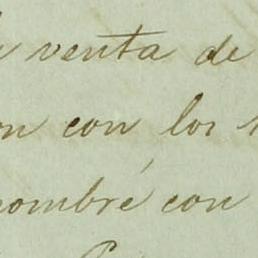 venta de
con los
nombré con